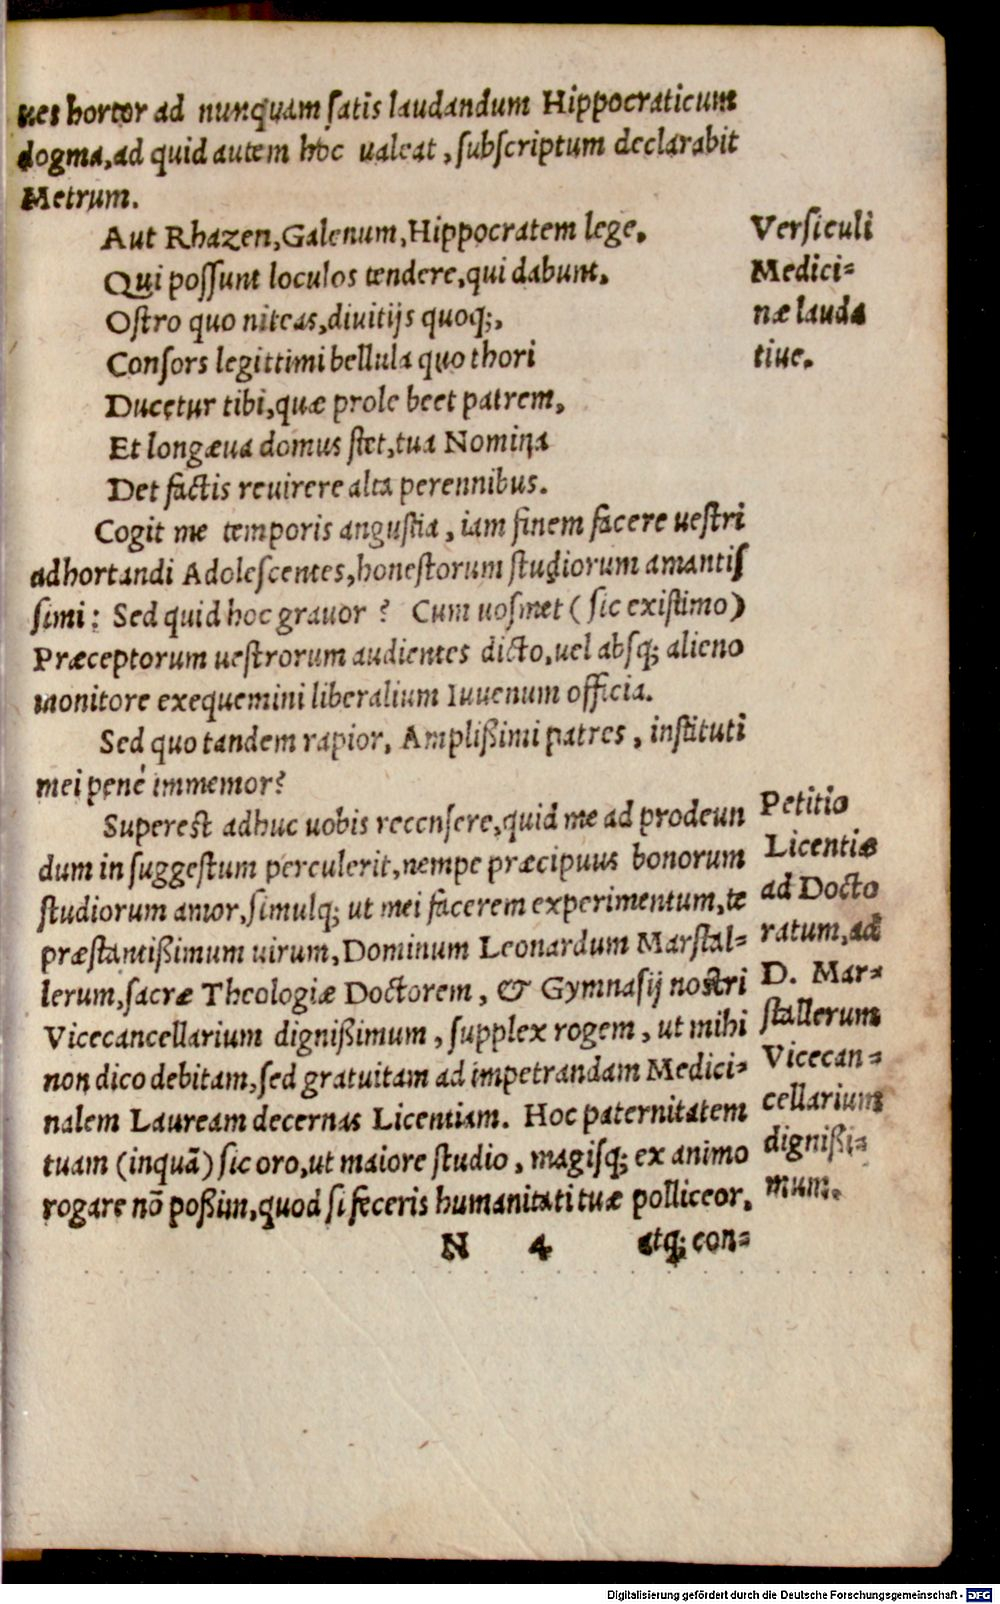 ues hortor ad nunquam ſatis laudandum Hippocraticum
dogma, ad quid autem hoc ualeat, ſubſcriptum declarabit
Metrum.
Aut Rhazen, Galenum, Hippocratem lege.
Qui poſſunt loculos tendere, qui dabunt.
Oſtro quo niteas, diuitijs quoq;,
Conſors legittimi bellula quo thori
Ducetur tibi, quæ prole beet patrem,
Et longæua domus ſtet, tua Nomina
Det factis reuirere alta perennibus.
Verſiculi
Medici=
næ lauda
tiue.
Cogit me temporis anguſtia, iam finem facere ueſtri
adhortandi Adoleſcentes, honeſtorum ſtudiorum amantiſ
ſimi: Sed quid hoc grauor? Cum uoſmet (ſic exiſtimo)
Præceptorum ueſtrorum audientes dicto, uel abſq; alieno
monitore exequemini liberalium Iuuenum officia.
Sed quo tandem rapior, Amplißimi patres, inſtituti
mei penè immemor?
Supereſt adhuc uobis recenſere, quid me ad prodeun
dum in ſuggeſtum perculerit, nempe præcipuus bonorum
ſtudiorum amor, ſimulq; ut mei facerem experimentum, te
præſtantißimum uirum, Dominum Leonardum Marſtal=
lerum, ſacræ Theologiæ Doctorem, & Gymnaſij noſtri
Vicecancellarium dignißimum, ſupplex rogem, ut mihi
non dico debitam, ſed gratuitam ad impetrandam Medici=
nalem Lauream decernas Licentiam. Hoc paternitatem
tuam (inquã) ſic oro, ut maiore ſtudio, magiſq; ex animo
rogare nõ poßim, quod ſi feceris humanitati tuæ polliceor.
Petitio
Licentiæ
ad Docto
ratum, ad
D. Mar=
ſtallerum
Vicecan=
cellarium
dignißi=
mum.
N 4 atq; con=
Digitalisierung gefördert durch die Deutsche Forschungsgemeinschaft - DFG